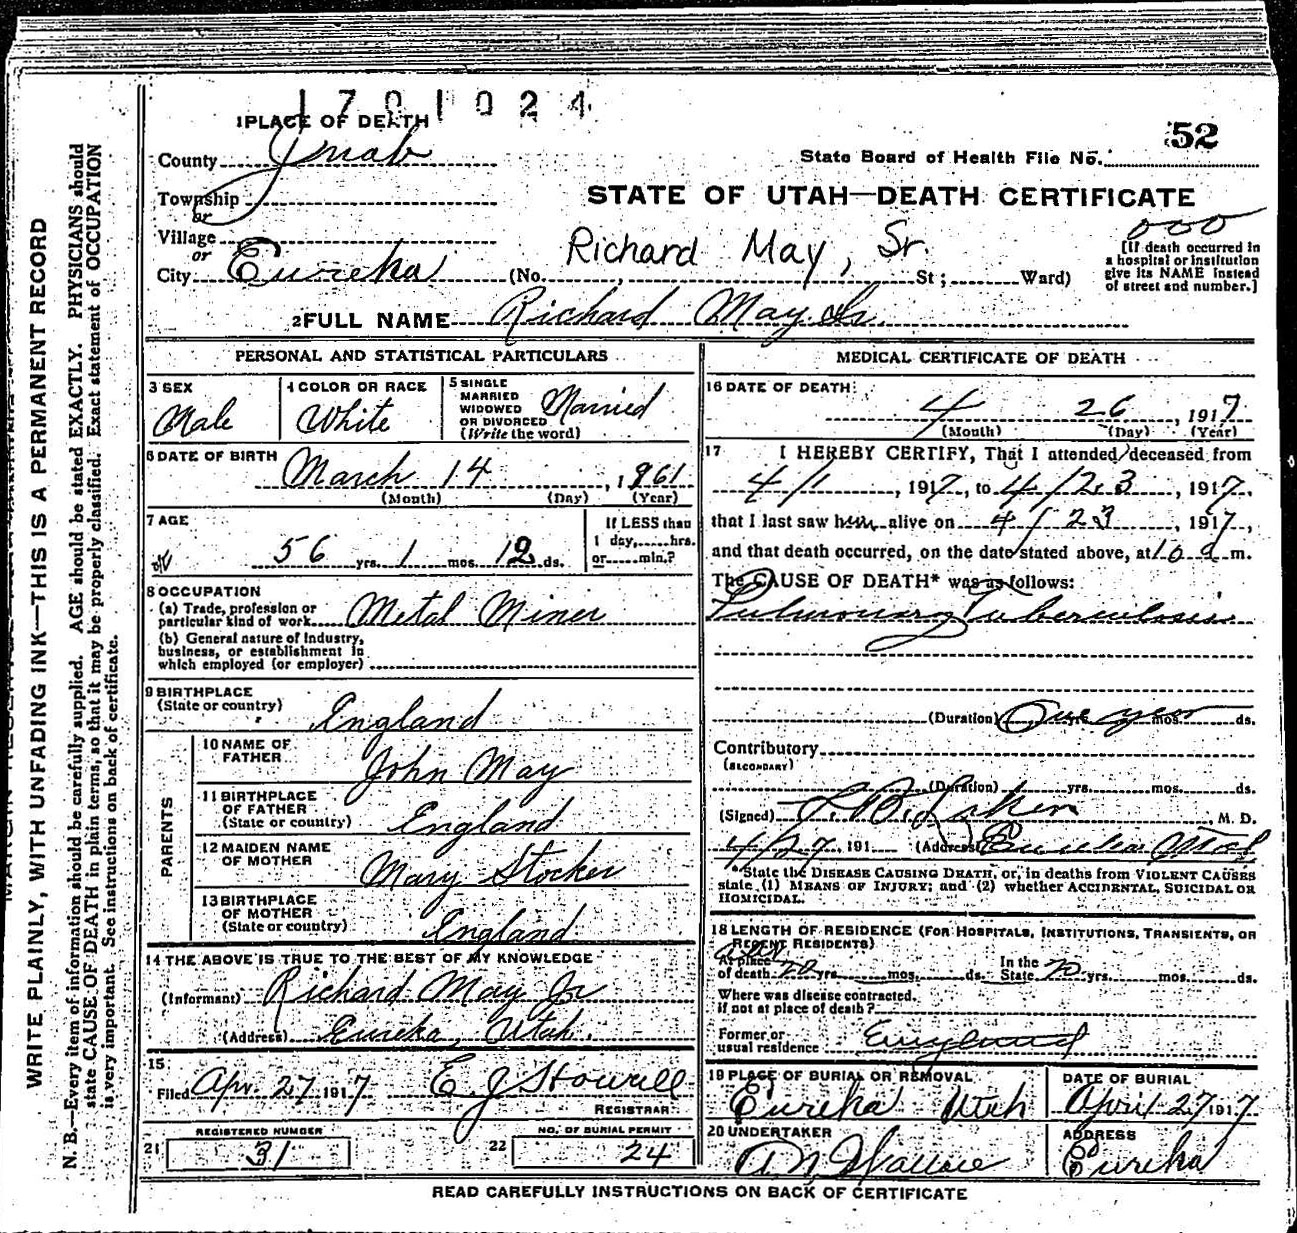 1701024
1 PLACE OF DEATH
52
County Juab
State Board of Health File No.
Township
or
STATE OF UTAH—DEATH CERTIFICATE
Village
or
000
Richard May, Sr.
[If death occurred in a hospital or institution give its NAME instead of street and number.]
City Eureka (No. St; Ward)
2 FULL NAME Richard May Sr.
PERSONAL AND STATISTICAL PARTICULARS
3 SEX Male
4 COLOR OR RACE White
5 SINGLE MARRIED WIDOWED OR DIVORCED (Write the word) Married
6 DATE OF BIRTH March 14, 1861
(Month) (Day) (Year)
7 AGE
56 yrs. 1 mos. 12 ds.
If LESS than 1 day, hrs. or min.?
8 OCCUPATION
(a) Trade, profession or particular kind of work Metal Miner
(b) General nature of Industry, business, or establishment in which employed (or employer)
9 BIRTHPLACE
(State or country) England
PARENTS
10 NAME OF FATHER John May
11 BIRTHPLACE OF FATHER (State or country) England
12 MAIDEN NAME OF MOTHER Mary Stocker
13 BIRTHPLACE OF MOTHER (State or country) England
14 THE ABOVE IS TRUE TO THE BEST OF MY KNOWLEDGE
(Informant) Richard May Jr
(Address) Eureka, Utah.
15
Filed Apr. 27 1917 E J Howell
REGISTRAR
21 REGISTERED NUMBER 31
22 NO. OF BURIAL PERMIT 24
MEDICAL CERTIFICATE OF DEATH
16 DATE OF DEATH:
4 26, 1917
(Month) (Day) (Year)
17 I HEREBY CERTIFY, That I attended deceased from
4/1, 1917, to 4/23, 1917,
that I last saw him alive on 4/23, 1917,
and that death occurred, on the date stated above, at 10 a m.
The CAUSE OF DEATH* was as follows:
Pulmonary Tuberculosis
(Duration) One year yrs. mos. ds.
Contributory
(SECONDARY)
(Duration) yrs. mos. ds.
(Signed) M. D.
4/27, 191 (Address) Eureka Utah
*State the DISEASE CAUSING DEATH, or, in deaths from VIOLENT CAUSES
state (1) MEANS OF INJURY; and (2) whether ACCIDENTAL, SUICIDAL OR
HOMICIDAL.
18 LENGTH OF RESIDENCE (FOR HOSPITALS, INSTITUTIONS, TRANSIENTS, OR
RECENT RESIDENTS)
At place of death 20 yrs. mos. ds. In the State 20 yrs. mos. ds.
Where was disease contracted, if not at place of death?
Former or usual residence England
19 PLACE OF BURIAL OR REMOVAL Eureka Utah
DATE OF BURIAL April 27 1917
20 UNDERTAKER A N Wallace
ADDRESS Eureka
READ CAREFULLY INSTRUCTIONS ON BACK OF CERTIFICATE
WRITE PLAINLY, WITH UNFADING INK—THIS IS A PERMANENT RECORD
N. B.—Every item of information should be carefully supplied. AGE should be stated EXACTLY. PHYSICIANS should
state CAUSE OF DEATH in plain terms, so that it may be properly classified. Exact statement of OCCUPATION
is very important. See instructions on back of certificate.